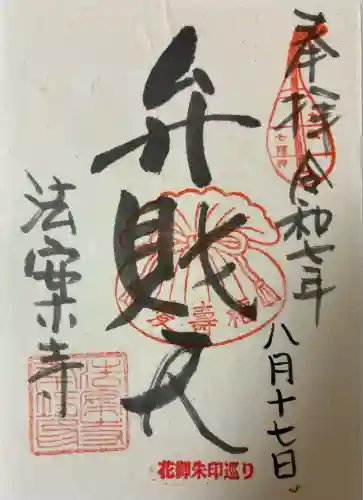 奉拝 令和七年
八月十七日
弁財天
法楽寺
花御朱印巡り